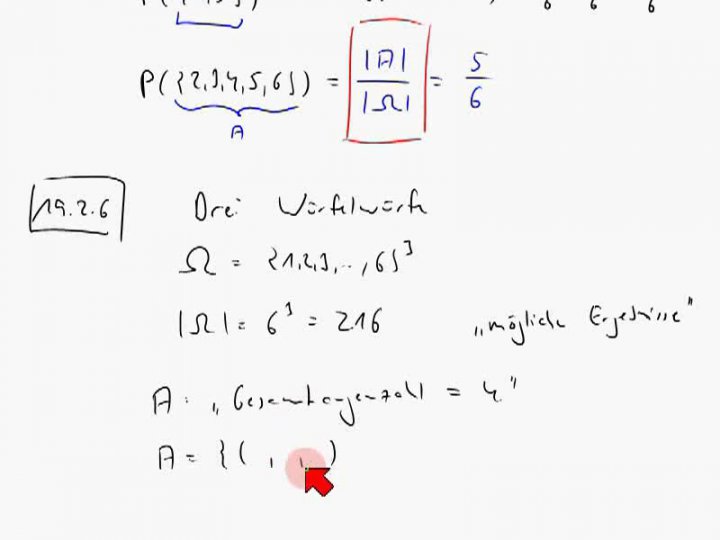 P({2,3,4,5,6}) = |A| / |Ω| = 5/6
A
19.2.6 Drei Würfelwürfe
Ω = {1,2,3,..,6}³
|Ω| = 6³ = 216 „mögliche Ergebnisse"
A: „Gesamtaugenzahl = 4"
A = {( , , )